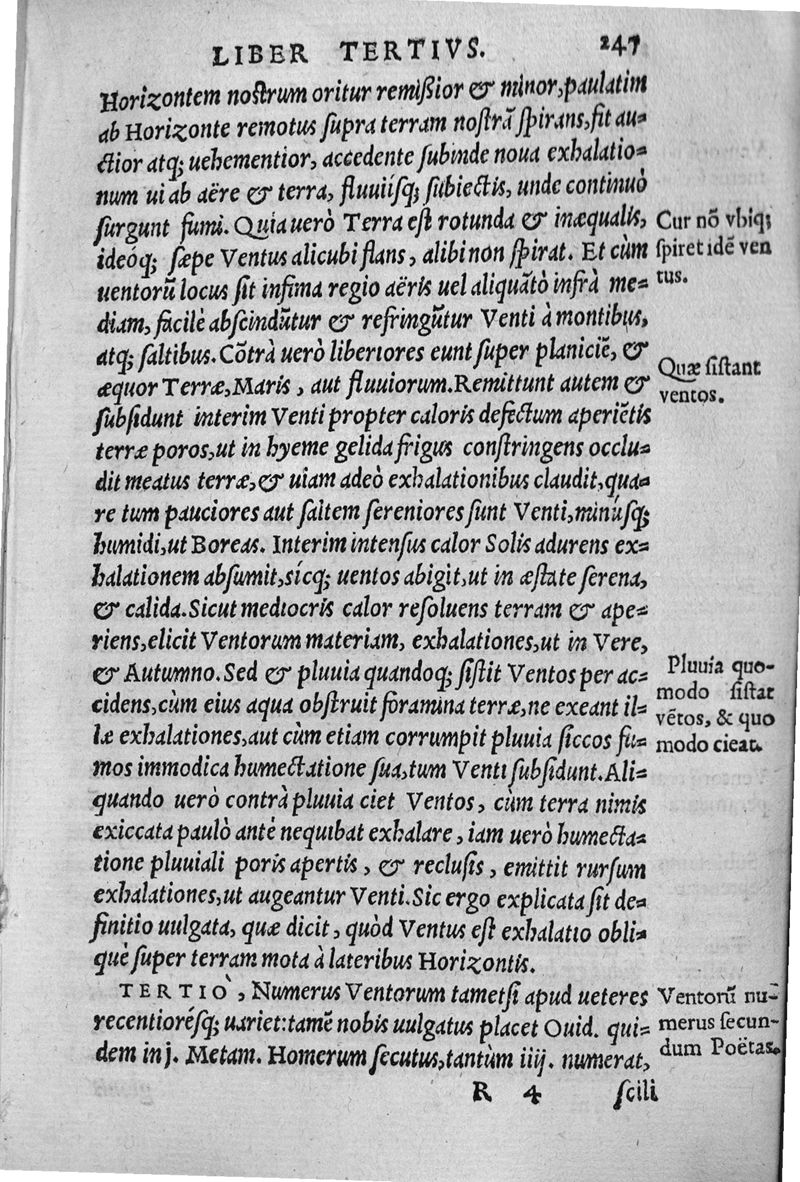 LIBER TERTIVS. 247
Horizontem nostrum oritur remißior & minor, paulatim
ab Horizonte remotus supra terram nostrã spirans, fit au=
ctior atq; uehementior, accedente subinde noua exhalatio=
num ui ab aëre & terra, fluuiisq; subiectis, unde continuò
surgunt fumi. Quia uerò Terra est rotunda & inæqualis,
ideóq; sæpe Ventus alicubi flans, alibi non spirat. Et cùm
uentorũ locus sit infima regio aëris uel aliquãtò infrà me=
diam, facilè abscindũtur & refringũtur Venti à montibus,
atq; saltibus. Cõtrà uerò liberiores eunt super planiciẽ, &
æquor Terræ, Maris, aut fluuiorum. Remittunt autem &
subsidunt interim Venti propter caloris defectum aperiẽtis
terræ poros, ut in hyeme gelida frigus constringens occlu=
dit meatus terræ, & uiam adeò exhalationibus claudit, qua=
re tum pauciores aut saltem sereniores sunt Venti, minúsq;
humidi, ut Boreas. Interim intensus calor Solis adurens ex=
halationem absumit, sícq; uentos abigit, ut in æstate serena,
& calida. Sicut mediocris calor resoluens terram & ape=
riens, elicit Ventorum materiam, exhalationes, ut in Vere,
& Autumno. Sed & pluuia quandoq; sistit Ventos per ac=
cidens, cùm eius aqua obstruit foramina terræ, ne exeant il=
læ exhalationes, aut cùm etiam corrumpit pluuia siccos fu=
mos immodica humectatione sua, tum Venti subsidunt. Ali=
quando uerò contrà pluuia ciet Ventos, cùm terra nimis
exiccata paulò antè nequibat exhalare, iam uerò humecta=
tione pluuiali poris apertis, & reclusis, emittit rursum
exhalationes, ut augeantur Venti. Sic ergo explicata sit de=
finitio uulgata, quæ dicit, quòd Ventus est exhalatio obli=
què super terram mota à lateribus Horizontis.
TERTIO`, Numerus Ventorum tametsi apud ueteres
recentiorésq; uariet: tamẽ nobis uulgatus placet Ouid. qui=
dem in j. Metam. Homerum secutus, tantùm iiij. numerat,
R 4 scili
Cur nõ vbiq;
spiret idẽ ven
tus.
Quæ sistant
ventos.
Pluuia quo-
modo sistat
vẽtos, & quo
modo cieat.
Ventorũ nu-
merus secun-
dum Poëtas.